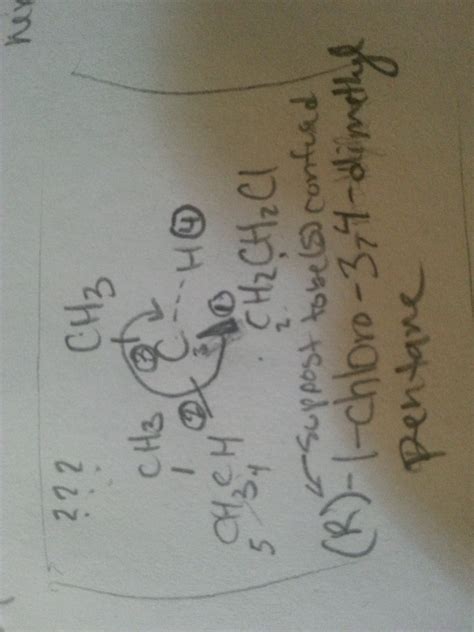 ???
CH3
CH3 ③ C H ④
② 3 ①
CH3CH CH2CH2Cl
5 4 2 1
← suppost to be (S) confused
(R)-1-chloro-3,4-dimethyl
pentane